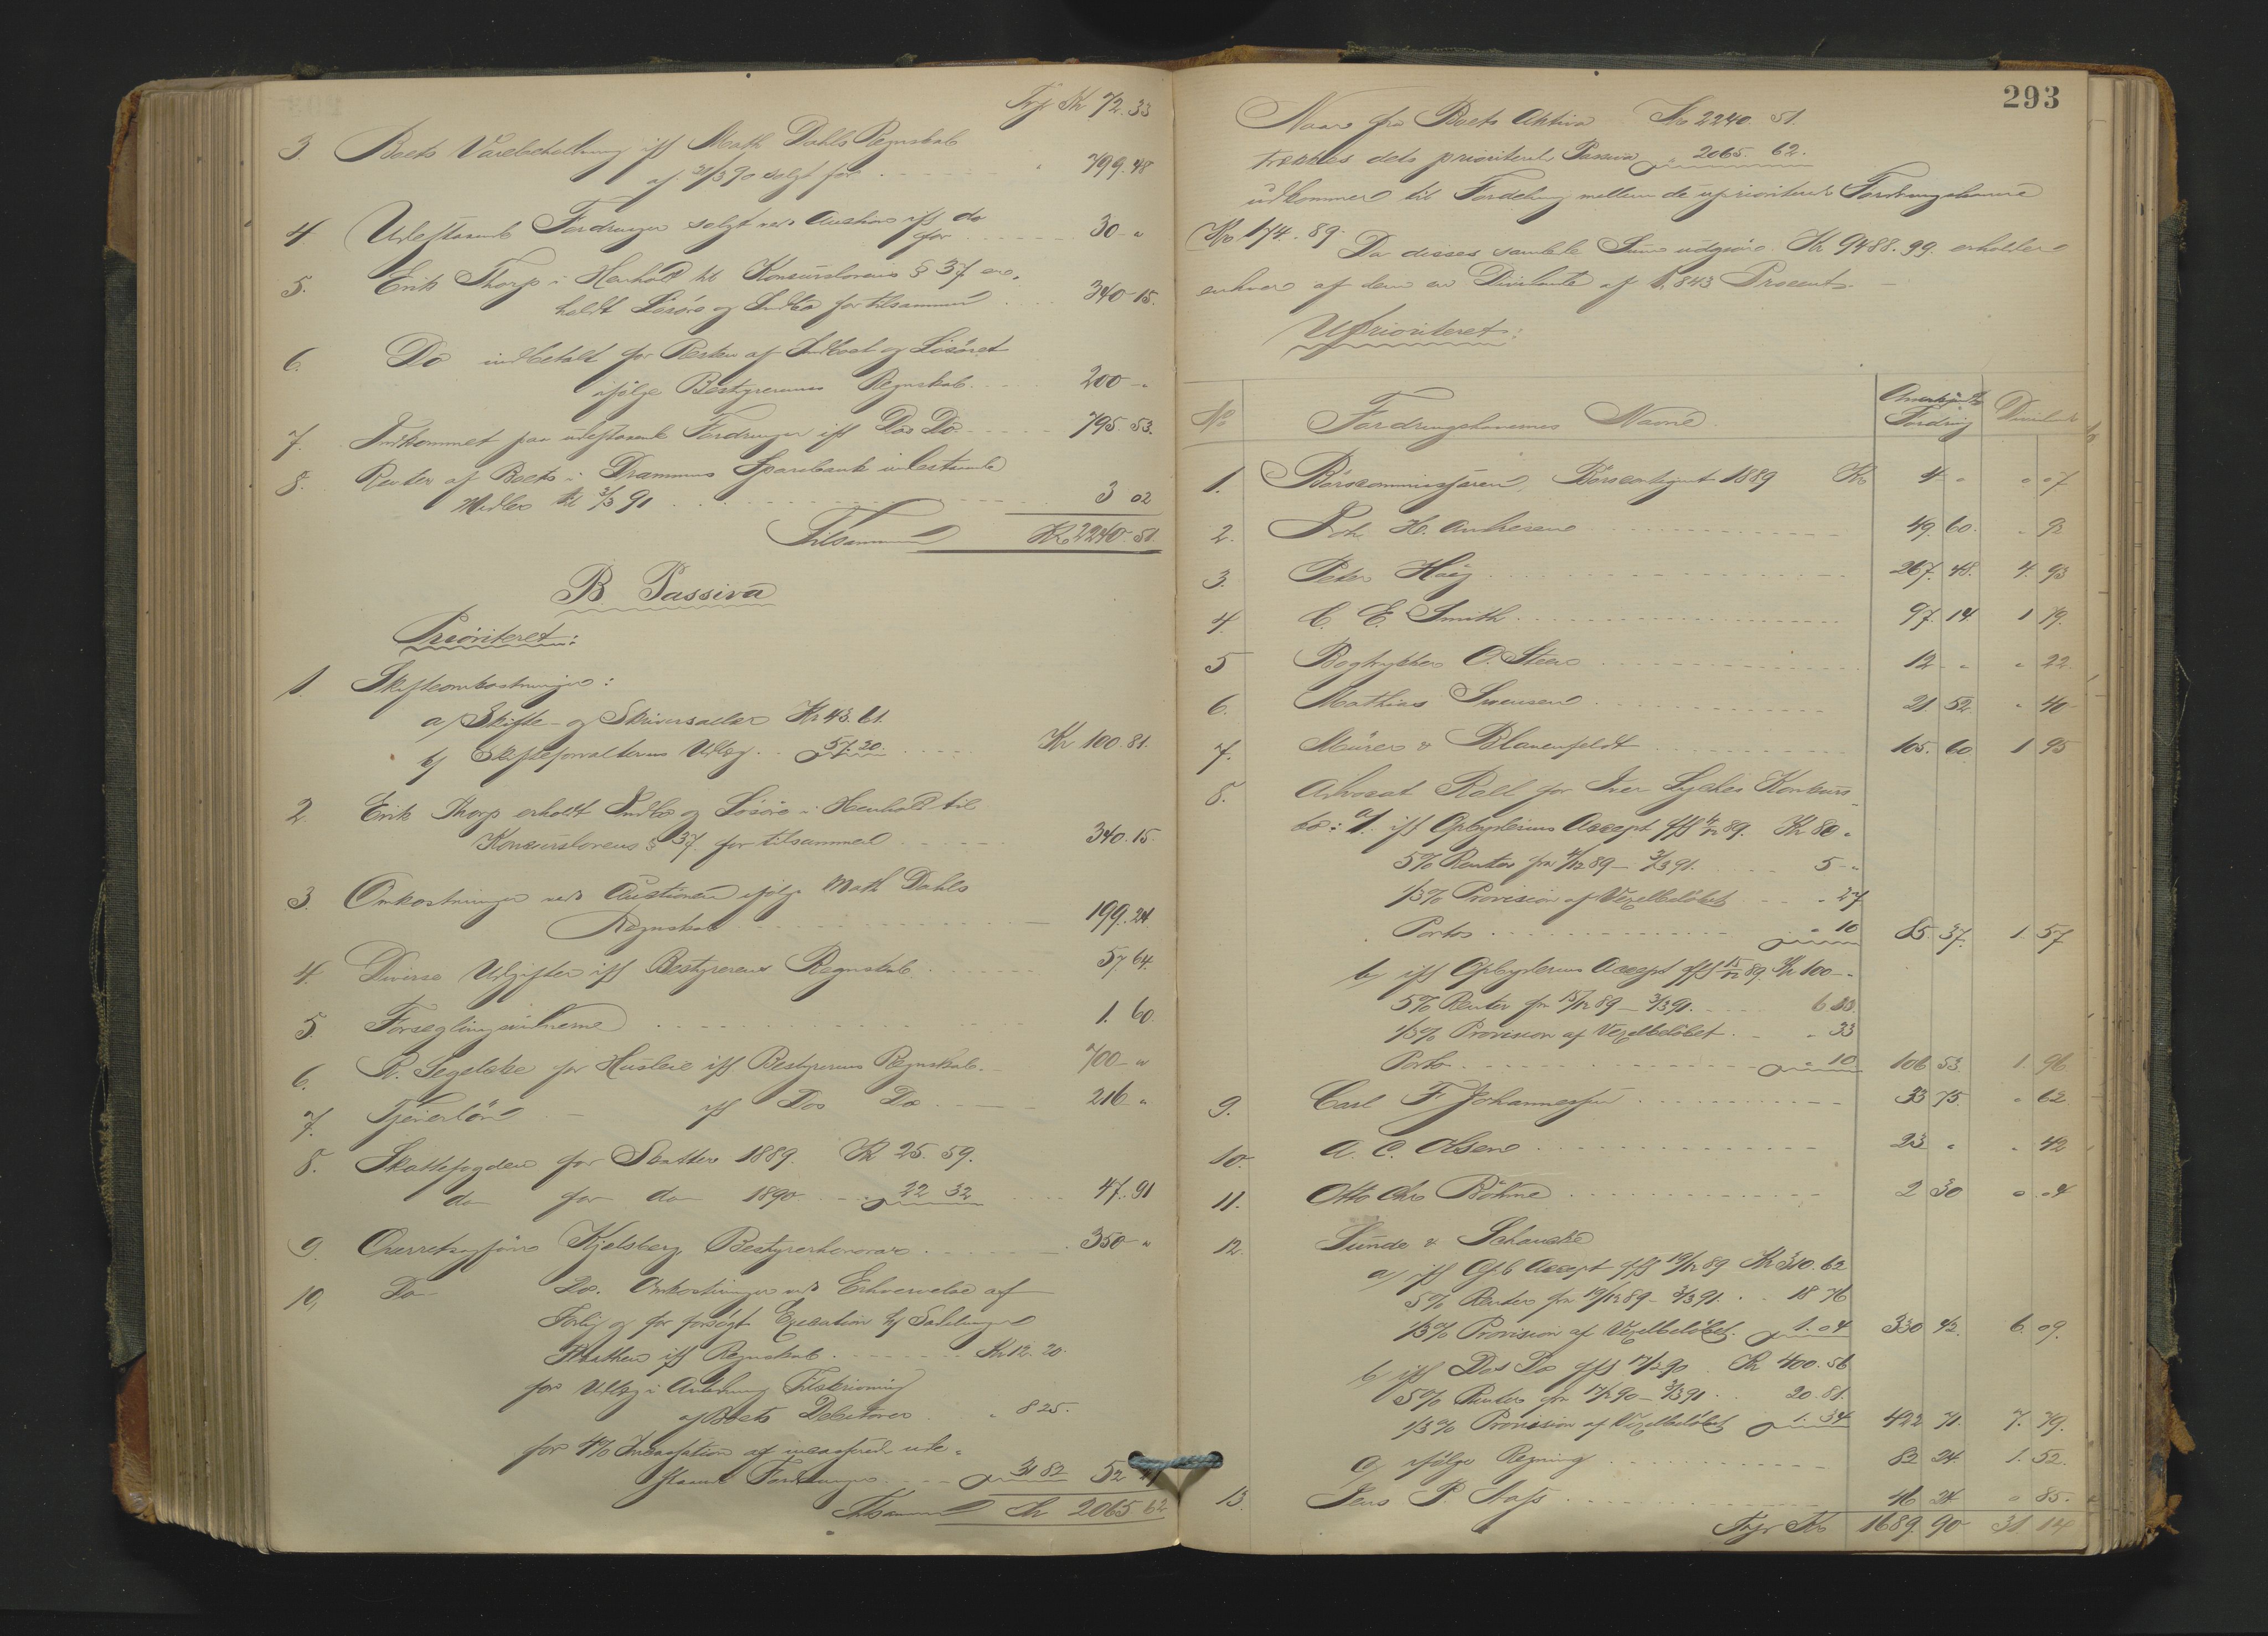 Trsp Kr 72.33
3. Boets Varebeholdning iflg Math Dahls Regnskab
af 21/3 90 solgt for " 799.48
4 Udestaaende Fordringer solgt ved Auction iflg do
for 30 "
5. Erik Thorp i Henhold til Konkurslovens § 37 er-
holdt Lösöre og Indbo for tilsammen 340.15.
6. Do indbetalt for Resten af Indboet og Lösöret
ifölge Bestyrerens Regnskab. 200 "
7. Indkommet paa udestaaende Fordringer iflg Dos Do 795 53.
8. Renter af Boets i Drammens Sparebank indestaaende
Midler til 3/3 91 3 02
Tilsammen Kr 2240.51
B. Passiva
Prioriteret:
1. Skifteomkostninger:
a/ Skifte- og Skriversalær Kr 43.61.
b/ Skifteforvalterens Udlæg " 57.20. Kr 100.81.
2. Erik Thorp erholdt Indbo og Lösöre i Henhold til
Konkurslovens § 37 for tilsammen 340.15.
3. Omkostninger ved Auctionen ifölge Math Dahls
Regnskab 199.24
4. Diverse Udgifter iflg Bestyrerens Regnskab 57 64.
5. Forseglingsvidnerne 1. 60.
6. R. Segelcke for Husleie iflg Bestyrerens Regnskab 700 "
7. Tjenerlön iflg Dos Do 216 "
8. Skattefogden for Skatter 1889. Kr 25.59.
do for do 1890 " 22 32 47.91
9. Overretssagförer Kjelsberg Bestyrerhonorar 350 "
10, Do Do. Omkostninger ved Erhvervelse af
Forlig og for forsögt Execution
iflg Regnskab Kr 12.20.
for Udlæg i Anledning Tilskrivning
af Boets Debitorer " 8 25.
for 4% Incassation af incasserede ude-
staaende Fordringer " 31 82 52 27
Tilsammen Kr 2065.62
293
Naar fra Boets Aktiva Kr 2240.51.
trækkes dets prioriterede Passiva " 2065.62.
udkommer til Fordeling mellem de uprioriterede Fordringshavere
Kr 174.89.
Da disses samlede Sum udgjöre Kr 9488.99 erholder
enhver af dem en Dividende af 1,843 Procent.
Uprioriteret:
No Fordringshavernes Navne Anerkjendte Fordring Dividende
1. Börscommissæren, Börscontingent 1889 Kr 4 " " 07
2. Joh. H. Andresen 49. 60. " 92
3. Peter Höeg 267. 48. 4. 93
4. C. E. Smith 97. 14 1 79.
5 Bogtrykker O. Steen 12 " " 22
6. Mathias Svensen 21. 52. " 40
7. Mürer & Blauenfeldt 105. 60 1 95
8. Advocat Roll for Iver Lyches Konkurs-
bo: a/. iflg Opbyderens Accept pff 4/12 89. Kr 80 "
5% Renter fra 4/12 89 - 3/3 91. 5 "
1/3% Provision af Vexelbelöbet " 27
Porto " 10 85. 37. 1. 57
b/ iflg Opbyderens Accept pff 15/12 89. Kr 100 "
5% Renter fra 15/12 89 - 3/3 91. 6 10.
1/3% Provision af Vexelbelöbet " 33
Porto " 10 106 53. 1. 96
9. Carl F. Johannessen 33 75. " 62.
10. A. C. Olsen 23 " " 42
11. Otto Chr Böhne 2 30 " 04
12. Sunde & Schanche
a/ iflg Opb Accept pff 19/12 89 Kr 310.62
5% Renter fra 19/12 89 - 3/3 91. 18 76
1/3% Provision af Vexelbelöbet. 1.04 330 42. 6. 09.
b/ iflg Dos Do pff 17/2 90 Kr 400.56
5% Renter fra 17/2 90 - 3/3 91. 20.81.
1/3% Provision af Vexelbelöbet 1.34 422 71. 7. 79.
c/ ifölge Regning 82 24 1. 52.
13. Jens P. 46 24 " 85.
Trspr Kr 1689. 90 31. 14